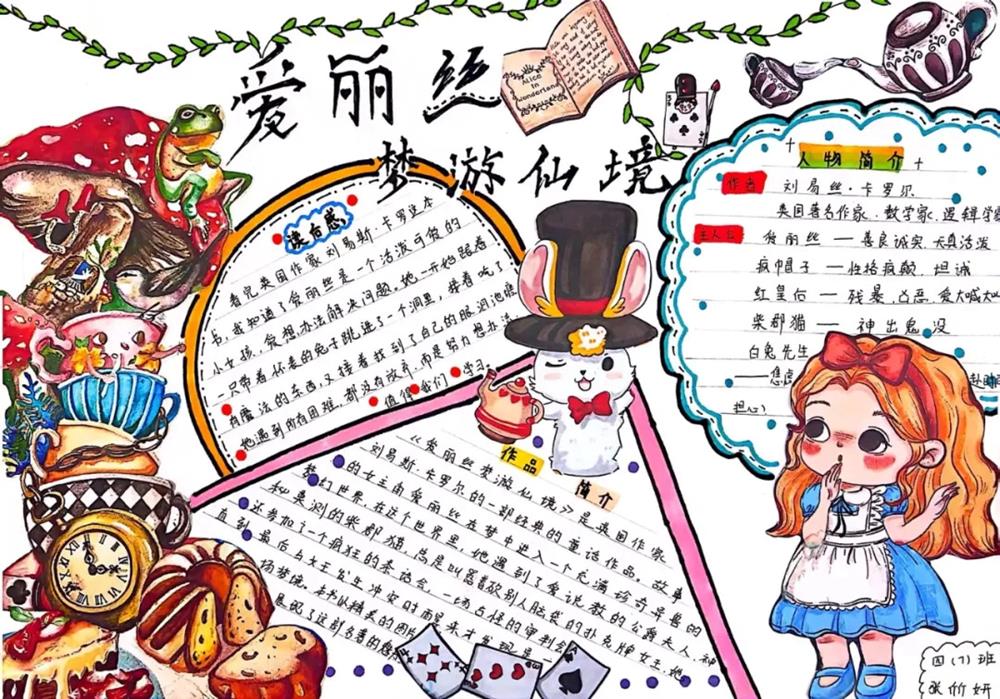 爱丽丝
梦游仙境
Alice
in
wonderland
读后感
看完英国作家刘易斯·卡罗这本
书,我知道了爱丽丝是一个活泼可爱的
小女孩,爱想办法解决问题,她一开始跟着
一只带着怀表的兔子跳进了一个洞里,接着吃了
有魔法的东西,又接着找到了自己的眼泪池塘
她遇到所有困难,都没有放弃,而是努力想办法
值得我们学习
人物简介
作者 刘易丝·卡罗尔
英国著名作家、数学家、逻辑学家
主人公 爱丽丝——善良诚实 天真活泼
疯帽子——性格疯颠,坦诚
红皇后——残暴,凶恶,爱大喊大
柴郡猫——神出鬼没
白兔先生
——焦虑
担心)
作品简介
《爱丽丝梦游仙境》是英国作家
刘易斯·卡罗尔的一部经典的童话作品。故事
的女主角爱丽丝在梦中进入一个充满给奇异的
梦幻世界,在这个世界里,她遇到了爱说教的公爵夫人,神
秘莫测的柴郡猫,总是叫嚣着砍别人脑袋的扑克牌女王,她
还参加了一个疯狂的茶话会,一场古怪的审判会
直到最后与女王发生冲突时而醒来才发现是一
场梦境。本书以精美的图片
四(7)班